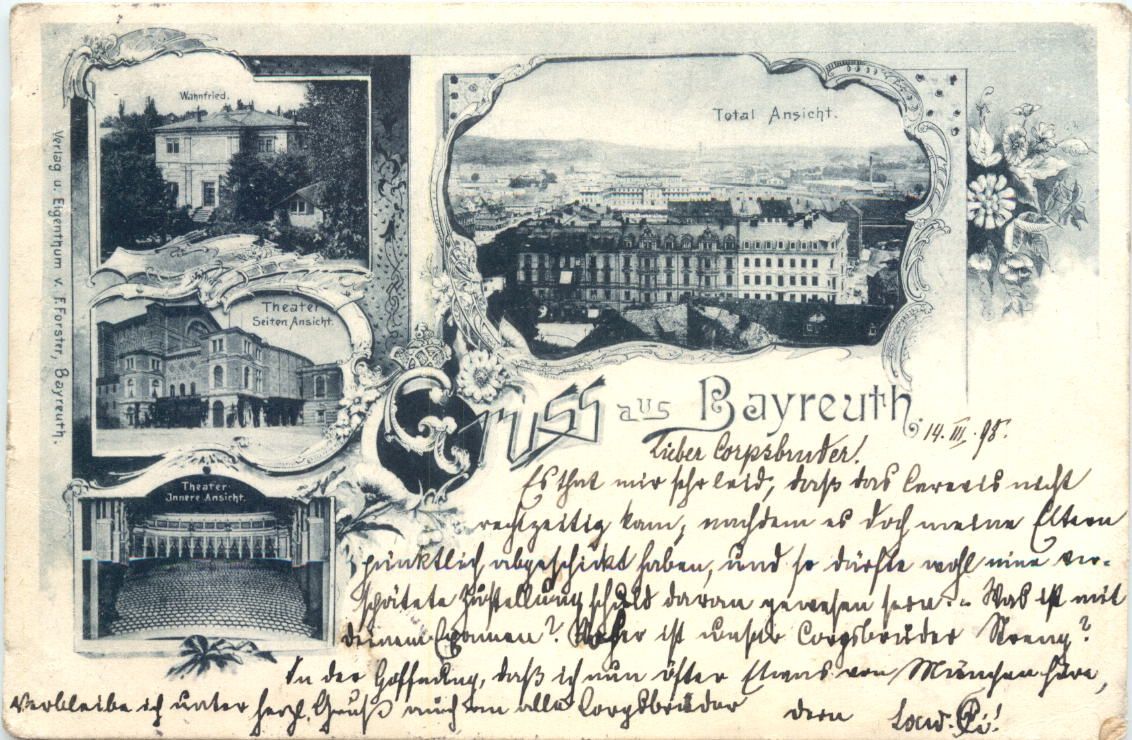 Wahnfried.
Total Ansicht.
Theater
Seiten Ansicht.
Theater-
Innere Ansicht.
Verlag u. Eigenthum v. F. Forster, Bayreuth.
Gruss aus Bayreuth.
14. III. 98.
Lieber Corpsbruder!
Es that mir sehr leid, daß das Cerevis nicht
rechtzeitig kam, nachdem es doch meine Eltern
pünktlich abgeschickt haben, und so dürfte wohl eine ver-
spätete Zustellung schuld daran gewesen sein. - Was ist mit
deinem Examen? Woher ist unser Corpsbruder Streng?
In der Hoffnung, daß ich nun öfter Etwas von München höre,
verbleibe ich unter herzl. Gruß auch an alle Corpsbrüder dein